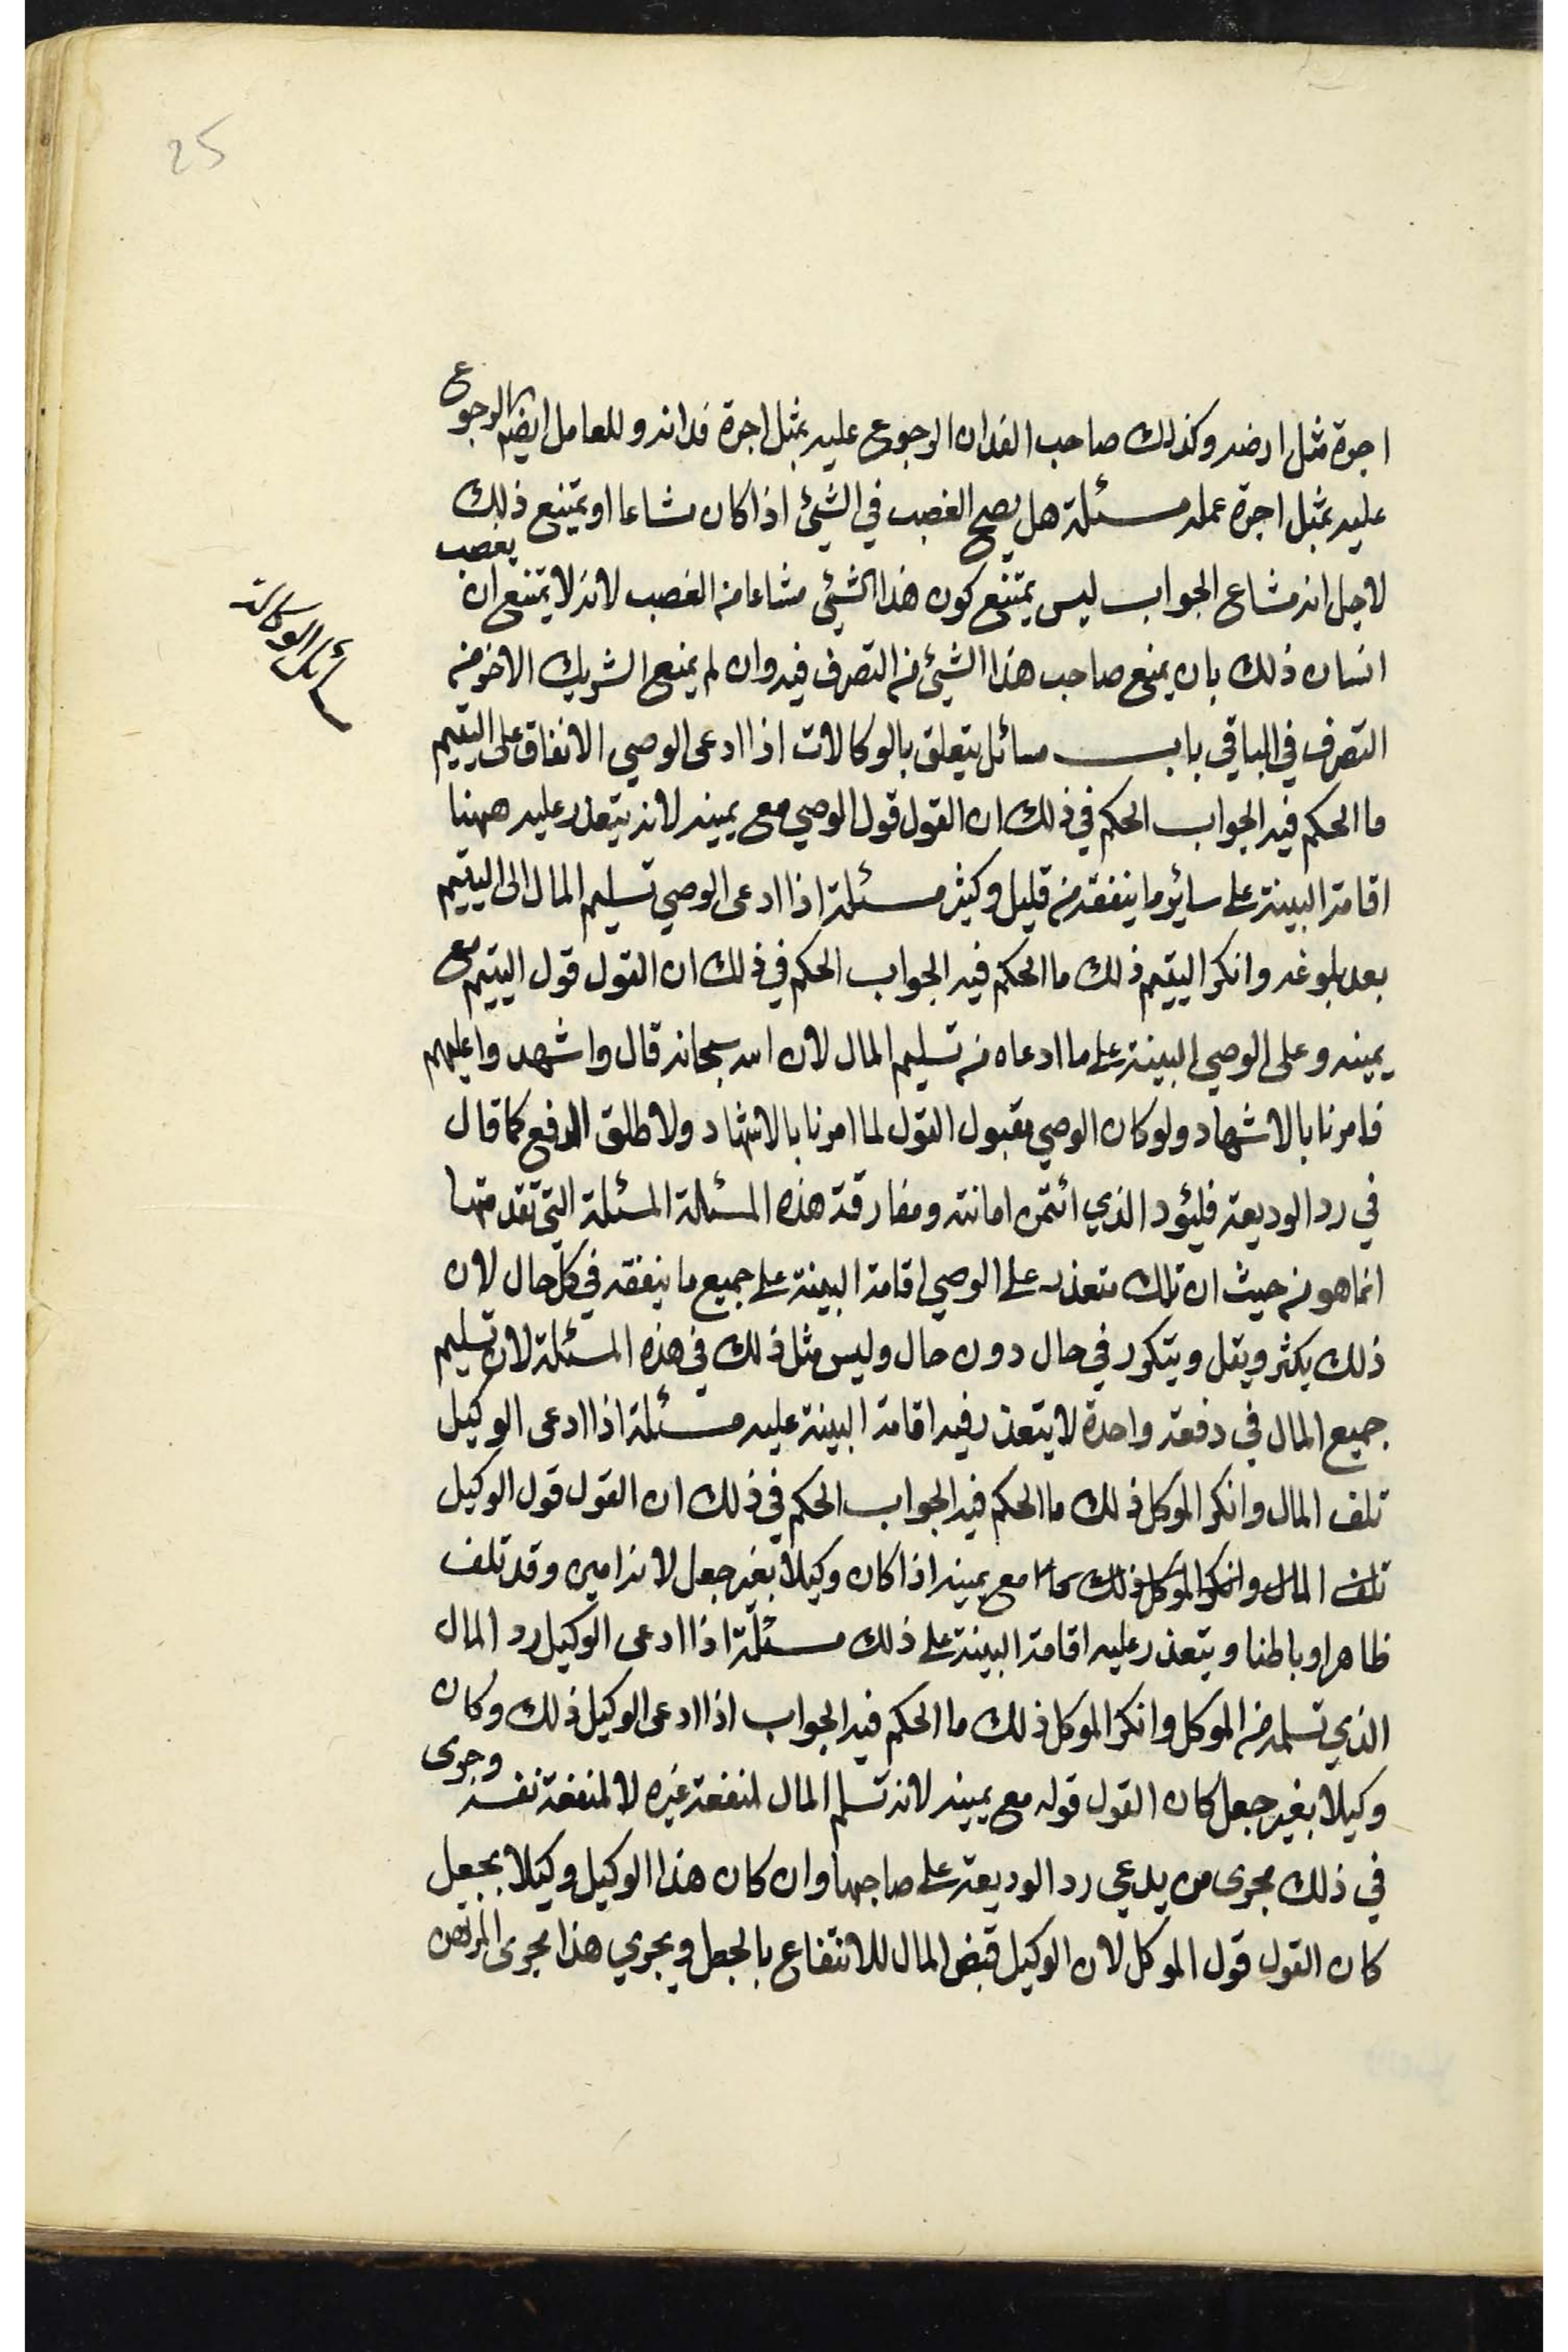 25
اجرة مثل ارضه وكذلك صاحب الفدان الرجوع عليه بمثل اجرة فدانه وللعامل ايضا الرجوع
عليه بمثل اجرة عمله مسئلة هل يصح الغصب في الشيئ اذا كان مشاعا او يمتنع ذلك
لاجل انه مشاع الجواب ليس يمتنع كون هذا الشيئ مشاعا من الغصب لانه لا يمتنع ان يغصب
انسان ذلك بان يمنع صاحب هذا الشيئ من التصرف فيه وان لم يمنع الشريك الاخر من
التصرف في الباقي باب مسائل يتعلق بالوكالات اذا ادعى الوصي الانفاق على اليتيم
ما الحكم فيه الجواب الحكم في ذلك ان القول قول الوصي مع يمينه لانه يتعذر عليه ههنا
اقامة البينة على سائر ما ينفقه من قليل وكثير مسئلة اذا ادعى الوصي تسليم المال الى اليتيم
بعد بلوغه وانكر اليتيم ذلك ما الحكم فيه الجواب الحكم في ذلك ان القول قول اليتيم مع
يمينه وعلى الوصي البينة على ما ادعاه من تسليم المال لان الله سبحانه قال واشهدوا عليهم
فامرنا بالاشهاد ولو كان الوصي مقبول القول لما امرنا بالاشهاد ولاطلق الدفع كما قال
في رد الوديعة فليؤد الذي ائتمن امانته ومفارقة هذه المسئلة المسئلة التي تقدمتها
انما هو من حيث ان تلك متعذر على الوصي اقامة البينة على جميع ما ينفقه في كل حال لان
ذلك يكثر ويقل ويتكرر في حال دون حال وليس مثل ذلك في هذه المسئلة لان تسليم
جميع المال في دفعة واحدة لا يتعذر فيه اقامة البينة عليه مسئلة اذا ادعى الوكيل
تلف المال وانكر الموكل ذلك ما الحكم فيه الجواب الحكم في ذلك ان القول قول الوكيل
تلف المال وانكر الموكل ذلك ما مع يمينه اذا كان وكيلا بغير جعل لانه امين وقد تلف
ظاهرا وباطنا ويتعذر عليه اقامة البينة على ذلك مسئلة اذا ادعى الوكيل رد المال
الذي تسلمه من الموكل وانكر الموكل ذلك ما الحكم فيه الجواب اذا ادعى الوكيل ذلك وكان
وكيلا بغير جعل كان القول قوله مع يمينه لانه تسلم المال لمنفعة غيره لا لمنفعة نفسه وجرى
في ذلك مجرى من يدعي رد الوديعة على صاحبها وان كان هذا الوكيل وكيلا بجعل
كان القول قول الموكل لان الوكيل قبض المال للانتفاع بالجعل ويجري هذا مجرى المرتهن
مسائل الوكالة